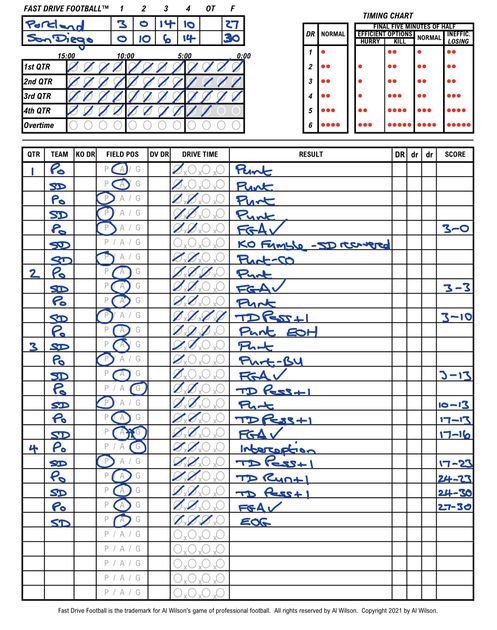 FAST DRIVE FOOTBALL™ 1 2 3 4 OT F
Portland 3 0 14 10 27
San Diego 0 10 6 14 30
15:00 10:00 5:00 0:00
1st QTR
2nd QTR
3rd QTR
4th QTR
Overtime
TIMING CHART
FINAL FIVE MINUTES OF HALF
DR NORMAL EFFICIENT OPTIONS NORMAL INEFFIC.
HURRY KILL LOSING
1
2
3
4
5
6
QTR TEAM KO DR FIELD POS DV DR DRIVE TIME RESULT DR dr dr SCORE
1 Po P A / G Punt
SD P A G Punt
Po P A / G Punt
SD P A / G Punt
Po P A / G FGA✓ 3-0
SD P / A / G KO Fumble - SD recovered
SD P A / G Punt-CO
2 Po P A G Punt
SD P A G FGA✓ 3-3
Po P A G Punt
SD P A / G TD Pass+1 3-10
Po P A G Punt EOH
3 SD P A G Punt
Po P A / G Punt-BU
SD P A G FGA✓ 3-13
Po P / A G TD Pass+1
SD P A / G Punt 10-13
Po P A G TD Pass+1 17-13
SD P A G FGA✓ 17-16
4 Po P / A G Interception
SD P A / G TD Pass+1 17-23
Po P A G TD Run+1 24-23
SD P A G TD Pass+1 24-30
Po P A G FGA✓ 27-30
SD P A G EOG
P / A / G
P / A / G
P / A / G
P / A / G
Fast Drive Football is the trademark for Al Wilson's game of professional football. All rights reserved by Al Wilson. Copyright 2021 by Al Wilson.